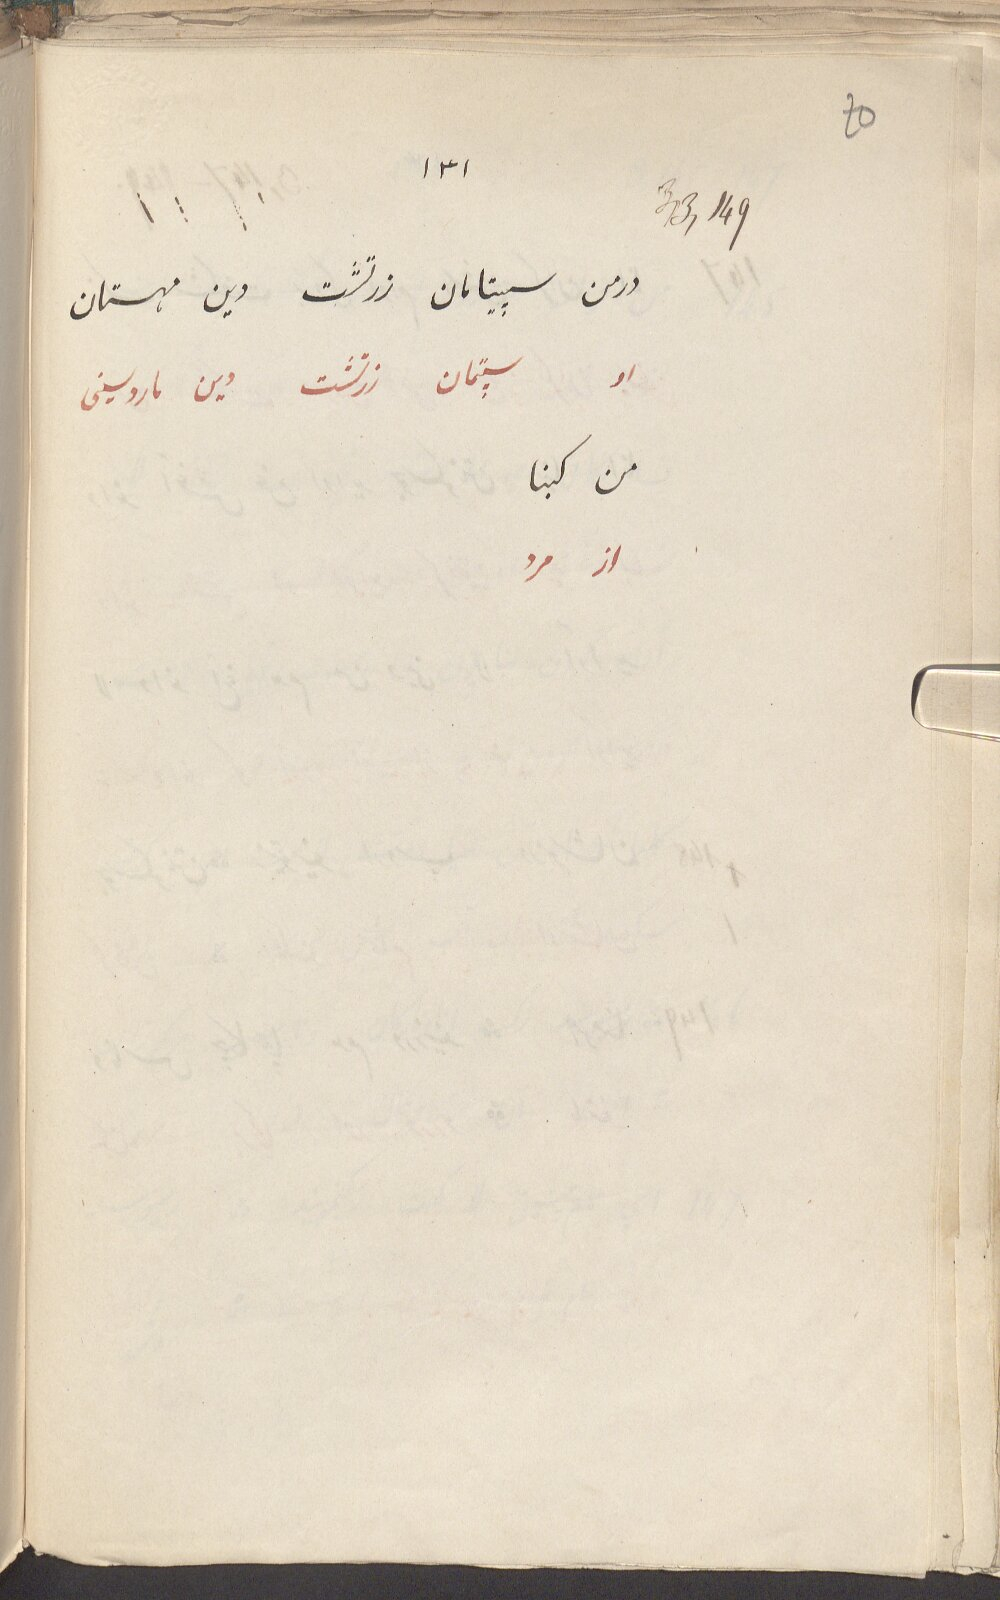 70
١٣١
3,3, 149
درمن سپیتامان زرتشت دین مهستان
او سپتمان زرتشت دین
من کبنا
از مرد